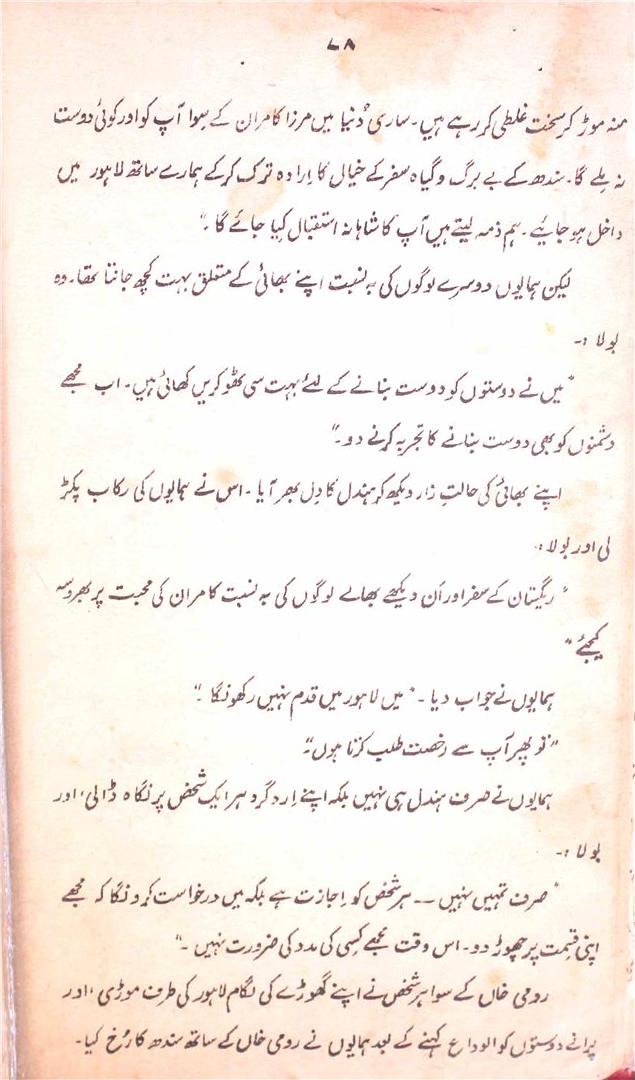 ۷۸
منہ موڑ کر سخت غلطی کر رہے ہیں۔ ساری دُنیا میں مرزا کامران کے سِوا آپ کو اور کوئی دوست
نہ ملے گا۔ سندھ کے بے برگ و گیاہ سفر کے خیالی کا اِرادہ ترک کر کے ہمارے ساتھ لاہور میں
داخل ہو جائیے۔ ہم ذمہ لیتے ہیں آپ کا شاہانہ استقبال کِیا جائے گا ۔"
لیکن ہمایوں دوسرے لوگوں کی بہ نسبت اپنے بھائی کے متعلق بہت کچھ جانتا تھا۔ وہ
بولا :۔
"میں نے دوستوں کو دوست بنانے کے لئے بہت سی ٹھوکریں کھائی ہیں۔ اب مجھے
دشمنوں کو بھی دوست بنانے کا تجربہ کرنے دو۔"
اپنے بھائی کی حالتِ زار دیکھ کر ہندل کا دِل بھر آیا ۔ اس نے ہمایوں کی رکاب پکڑ
لی اور بولا :۔
"ریگستان کے سفر اور اَن دیکھے بھالے لوگوں کی بہ نسبت کامران کی محبت پر بھروسہ
کیجئے"
ہمایوں نے جواب دیا ۔ "میں لاہور میں قدم نہیں رکھونگا ۔"
"تو پھر آپ سے رخصت طلب کرتا ہوں"۔
ہمایوں نے صرف ہندل ہی نہیں بلکہ اپنے اِرد گرد ہر ایک شخص پر نگاہ ڈالی، اور
بولا :۔
"صرف تمہیں نہیں ۔۔ ہر شخص کو اِجازت ہے بلکہ میں درخواست کرونگا کہ مجھے
اپنی قسمت پر چھوڑ دو۔ اس وقت مجھے کِسی کی مدد کی ضرورت نہیں ۔"
رومی خاں کے سوا ہر شخص نے اپنے گھوڑے کی لگام لاہور کی طرف موڑی، اور
پرانے دوستوں کو الوداع کہنے کے بعد ہمایوں نے رومی خاں کے ساتھ سندھ کا رُخ کیا۔